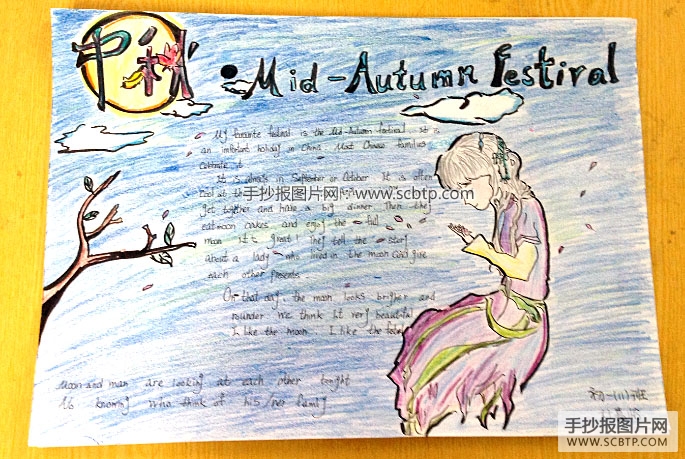 中秋 Mid-Autumn Festiral
My favorite festival is the Mid-Autumn festival. It is
an important holiday in China. Most Chinese families
celebrate it
It is always in September or October. It is often
cool at
手抄报图片网：www.scbtp.com
get together and have a big dinner. Then they
eat moon cakes and enjoy the full
moon. It's great! They tell the story
about a lady who lived in the moon and give
each other presents
On that day, the moon looks brigher and
rounder. We think it very beautiful
I like the moon. I like the
Moon and man are looking at each other tonight
No knowing who think of his/her family
初一(1)班
手抄报图片网
WWW.SCBTP.COM